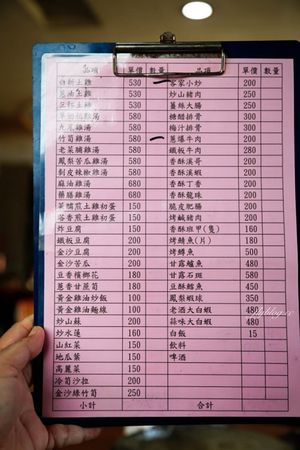 品項 單價 數量 品項 單價 數量
白斬土雞 530 客家小炒 200
蔥油土雞 530 炒山豬肉 250
530 薑絲大腸 250
雞湯 580 糖醋排骨 300
雞湯 530 梅汁排骨 300
竹筍雞湯 530 蔥爆牛肉 200
老菜脯雞湯 580 鐵板牛肉 280
鳳梨苦瓜雞湯 580 香酥溪哥 200
剝皮辣椒雞湯 580 香酥溪蝦 200
麻油雞湯 680 香酥丁香 200
藥膳雞湯 580 香酥龍珠 200
菜脯煎土雞初蛋 150 脆皮肥腸 200
蔥香煎土雞初蛋 150 烤鹹豬肉 250
炸豆腐 150 香酥班甲(隻) 160
鐵板豆腐 180 烤鯖魚(片) 180
金沙豆腐 200 烤鱒魚 500
金沙苦瓜 200 甘露鱸魚 480
豆香檳榔花 180 甘露石斑 580
蔥香甘蔗筍 180 豆酥鱈魚 450
黃金雞油炒飯 100 鳳梨蝦球 350
黃金雞油麵線 100 老酒大白蝦 480
炒山蘇 200 蒜味大白蝦 480
炒水蓮 160 白飯 15
山紅菜 150 飲料
地瓜葉 150 啤酒
高麗菜 150
冷筍沙拉 200
金沙綠竹筍 250
小計 合計